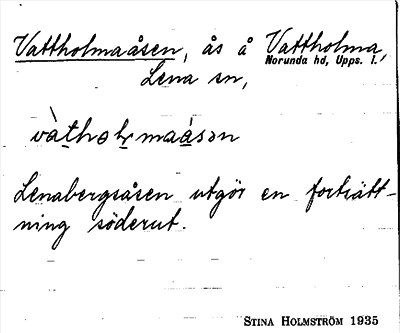 Vattholmaåsen, ås å Vattholma,
Norunda hd, Upps. l.
Lena sn,
vàtholmaásən
Lenabergsåsen utgör en fortsätt-
ning söderut.
STINA HOLMSTRÖM 1935